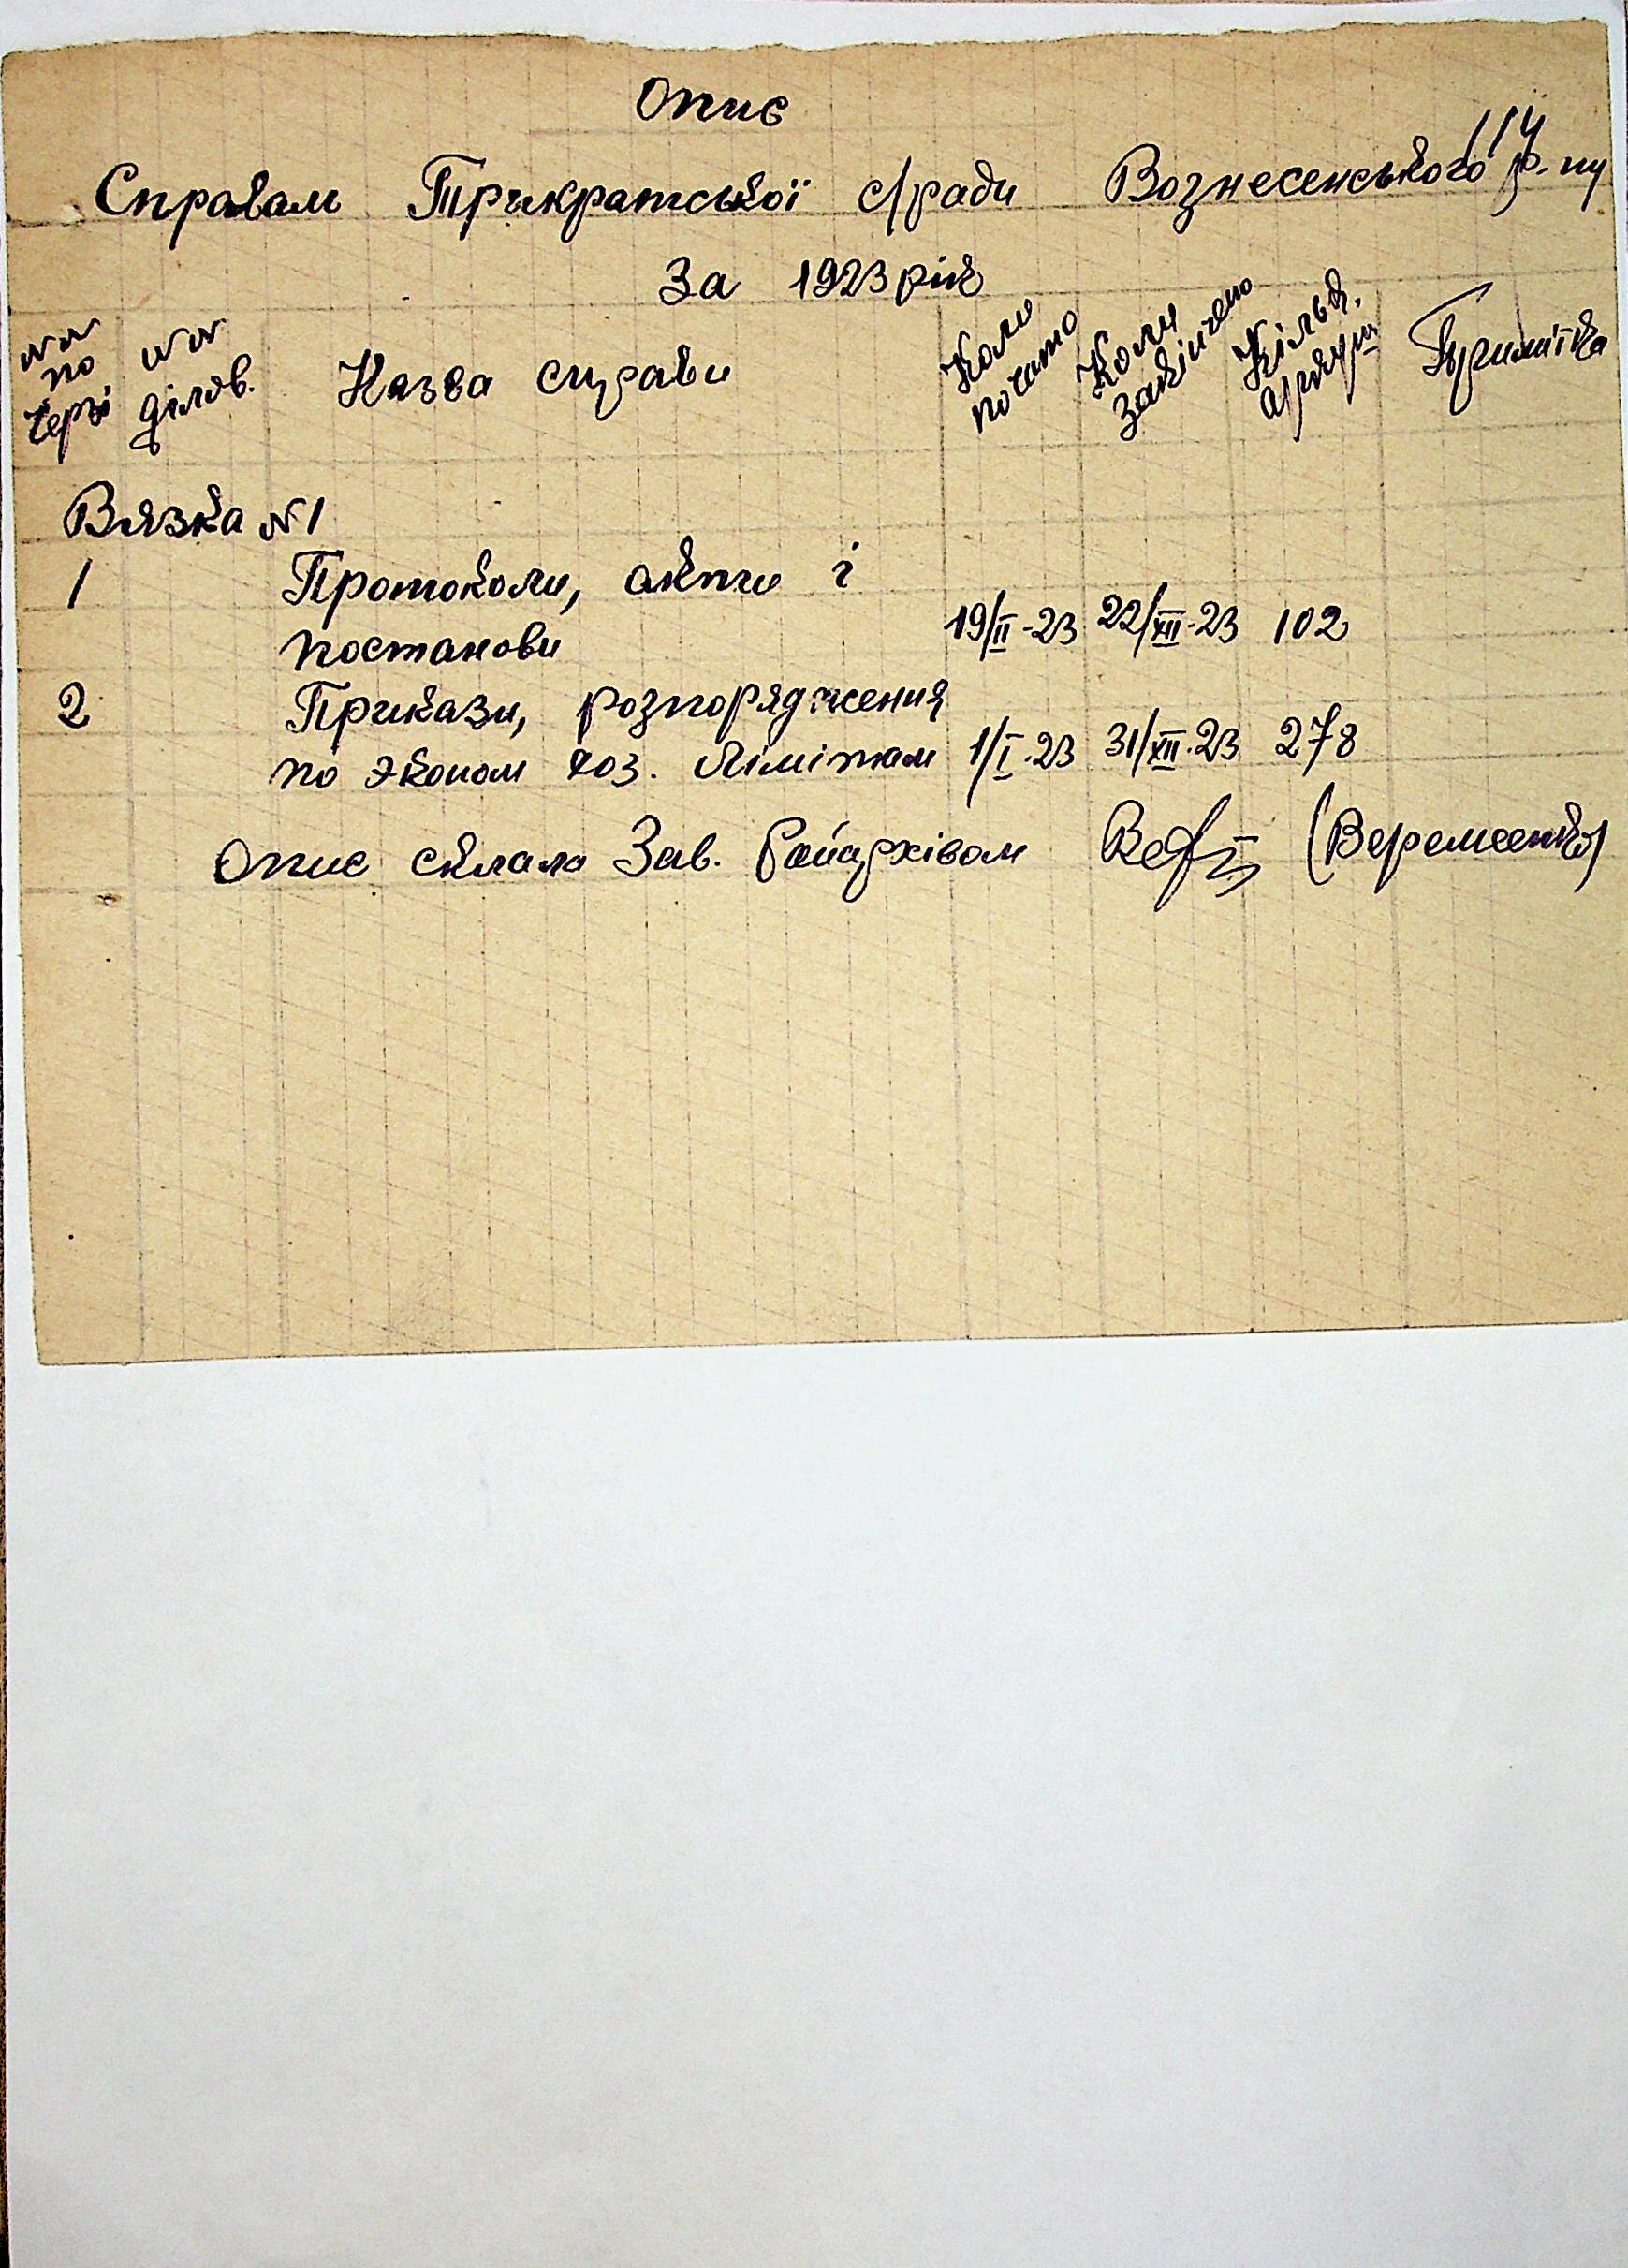 Опис
114
Справам Трикратської с/ради Вознесенського р-ну
За 1923 рік
NN по черзі NN ділов. Назва справи Коли почато Коли закінчено Кільк. аркуш Примітка
Вязка N1
1 Протоколи, акти і
постанови 19/II-23 22/XII-23 102
2 Прикази, розпорядження
по эконом хоз. лімітам 1/I.23 31/XII.23 278
Опис склала Зав. Райархівом (Веремеенко)